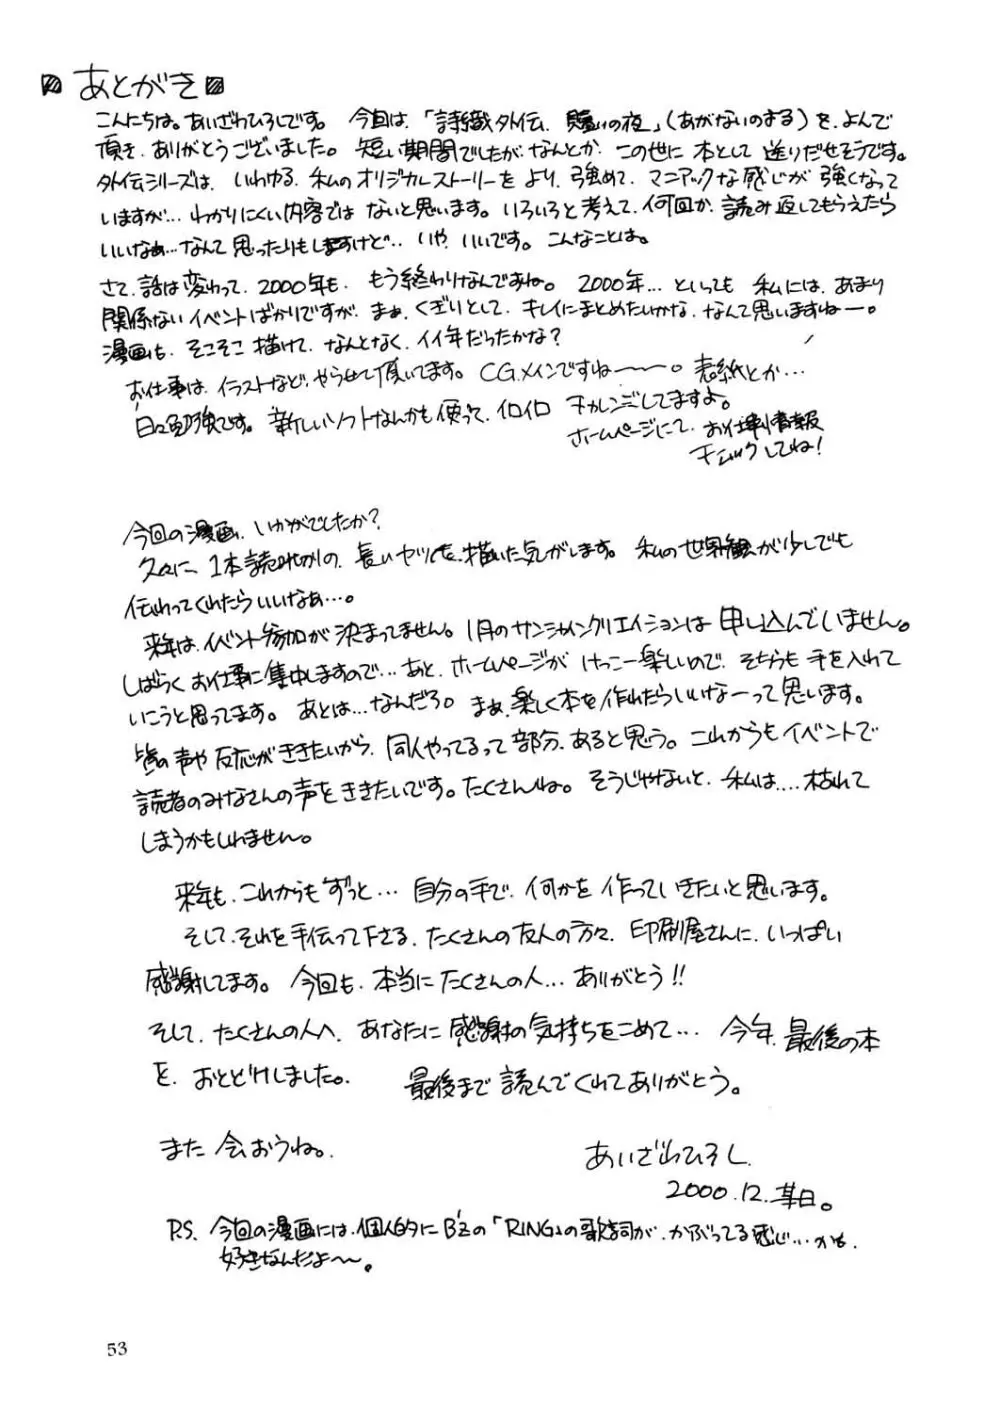 あとがき
こんにちは。あいざわひろしです。今回は、「詩織外伝、贖いの夜」(あがないのよる)を、よんで
頂き、ありがとうございました。短い期間でしたが、なんとか、この世に本として送りだせそうです。
外伝シリーズは、いわゆる、私のオリジナルストーリーをより、強めて、マニアックな感じが強くなって
いますが…わかりにくい内容ではないと思います。いろいろと考えて、何回か、読み返してもらえたら
いいなぁ…なんて思ったりもしますけど…いや、いいです。こんなことは。
さて、話は変わって、2000年も、もう終わりなんですね。2000年…といっても私には、あまり
関係ないイベントばかりですが、まぁ、くぎりとして、キレイにまとめたいかな、なんて思いますねー。
漫画も、そこそこ描けて、なんとなく、イイ年だったかな?
お仕事は、イラストなど、やらせて頂いてます。CGメインですね〜〜。表紙とか…
日々勉強です。新しいソフトなんかも使って、イロイロチャレンジしてますよ。
ホームページにて、お仕事情報
チェックしてね!
今回の漫画、いかがでしたか?
久々に、1本読み切りの、長いヤツを、描いた気がします。私の世界観が少しでも
伝わってくれたらいいなぁ…。
来年は、イベント参加が決まってません。1月のサンシャインクリエイションは申し込んでいません。
しばらくお仕事に集中しますので…あと、ホームページがけっこー楽しいので、そちらも手を入れて
いこうと思ってます。あとは…なんだろ。まぁ、楽しく本を作れたらいいなーって思います。
皆の声や反応がききたいから、同人やってるって部分、あると思う。これからもイベントで
読者のみなさんの声をききたいです。たくさんね。そうじゃないと、私は....枯れて
しまうかもしれません。
来年も、これからもずっと…自分の手で、何かを作っていきたいと思います。
そして、それを手伝って下さる、たくさんの友人の方々、印刷屋さんに、いっぱい
感謝してます。今回も、本当にたくさんの人…ありがとう!!
そして、たくさんの人へ、あなたに感謝の気持ちをこめて…今年、最後の本
を、おとどけしました。最後まで読んでくれてありがとう。
また会おうね。
あいざわひろし.
2000.12.某日。
P.S. 今回の漫画には、個人的にB'zの「RING」の歌詞が、かぶってる感じ…かも、
好きなんだよ〜〜。
53